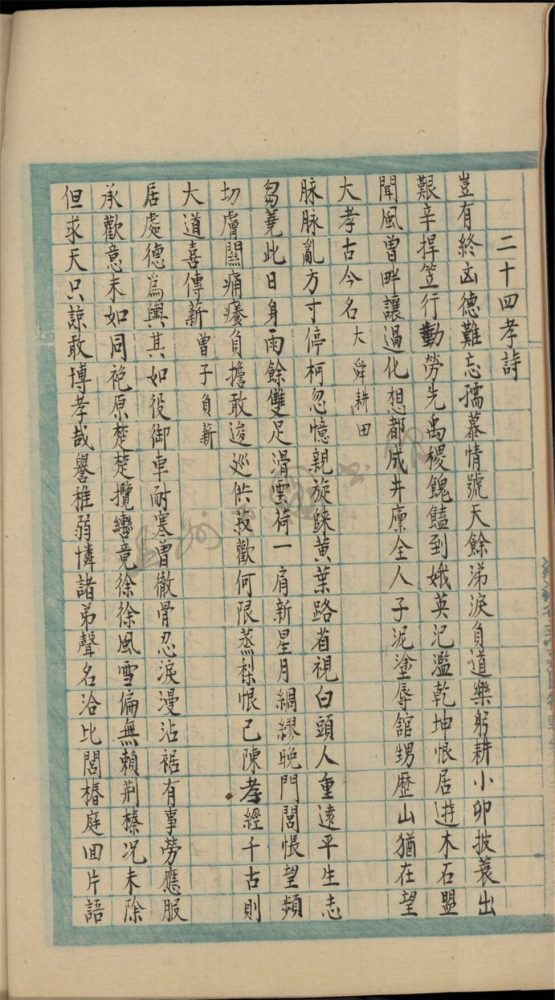 二十四孝詩
豈有終凶德難忘孺慕情號天餘涕淚負道樂躬耕小卯披蓑出
艱辛捍笠行動勞先禹稷餽饁到娥英汜濫乾坤恨居遊木石盟
聞風曾畔讓過化想都成井廩全人子泥塗辱館甥歷山猶在望
大孝古今名 大舜耕田
脉脉亂方寸停柯忽憶親旋踩黄葉路省視白頭人重遠平生志
芻蕘此日身雨餘雙足滑雲荷一肩新星月綢繆晚門閭悵望頻
切膚關痛癢負擔敢逡巡供菽歡何限蒸梨恨已陳孝經千古則
大道喜傳薪 曾子負薪
居處德為輿其如役御車耐寒曾徹骨忍淚漫沾裾有事勞應服
承歡意未如同袍原楚楚攬轡竟徐徐風雪偏無賴荆榛况未除
但求天只諒敢博孝哉譽椎弱憐諸弟聲名洽比閭椿庭回片語